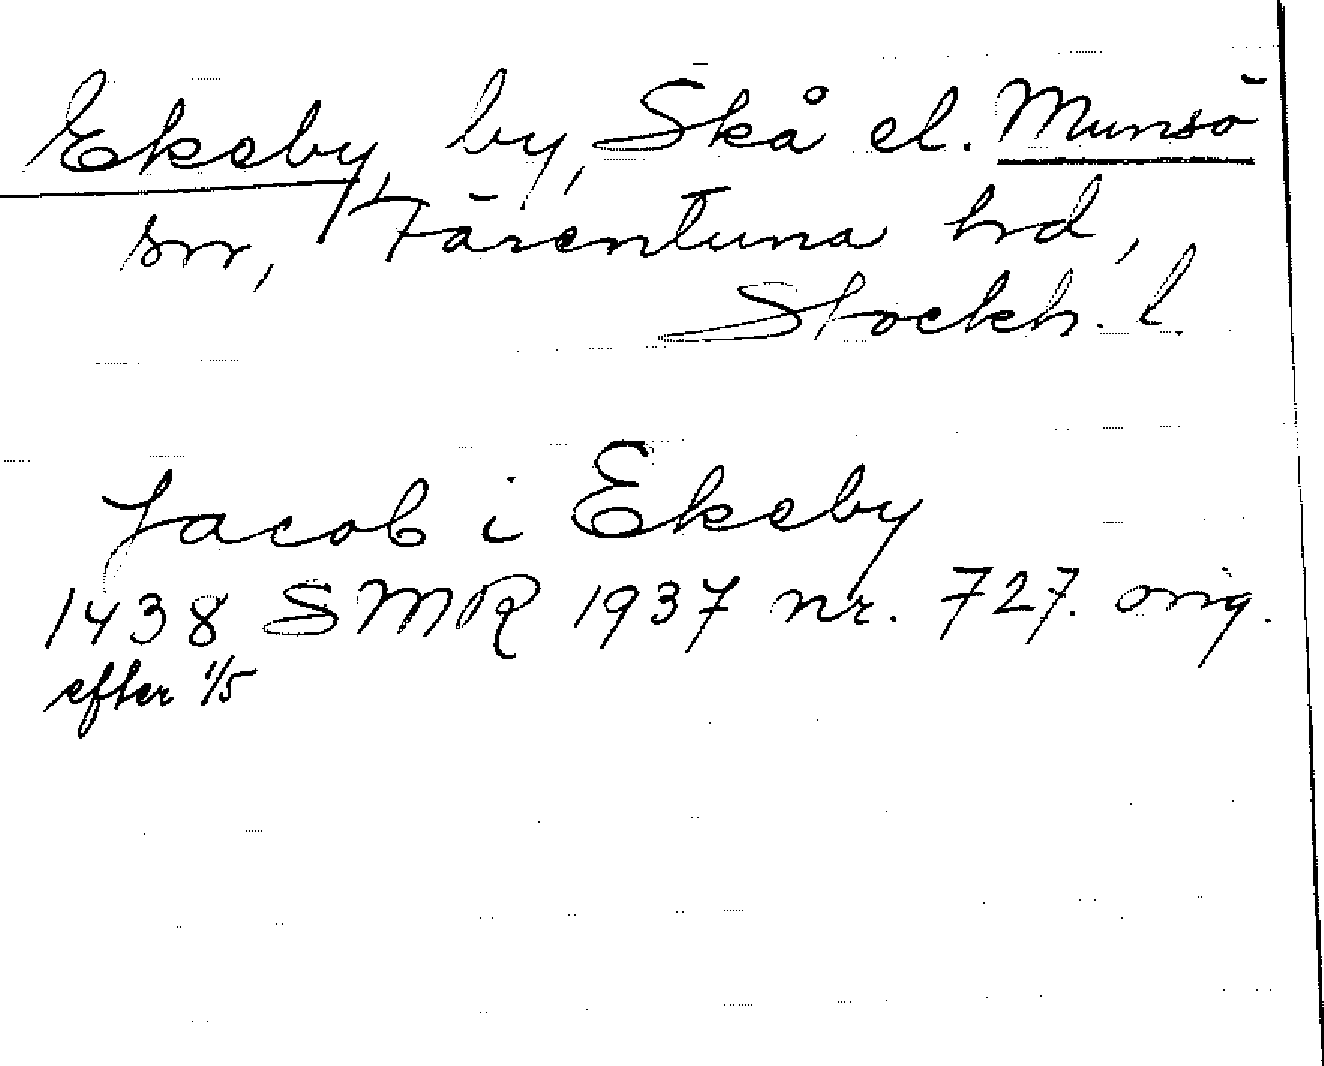 Ekeby, by, Skå el. Munsö
snr, Färentuna hrd,
Stockh. l.
Jacob i Ekeby
1438 SMR 1937 nr. 727. orig.
efter 1/5